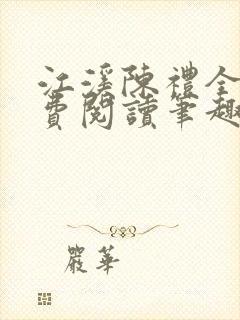 江溪陳禮全
費閱讀筆趣
嚴華